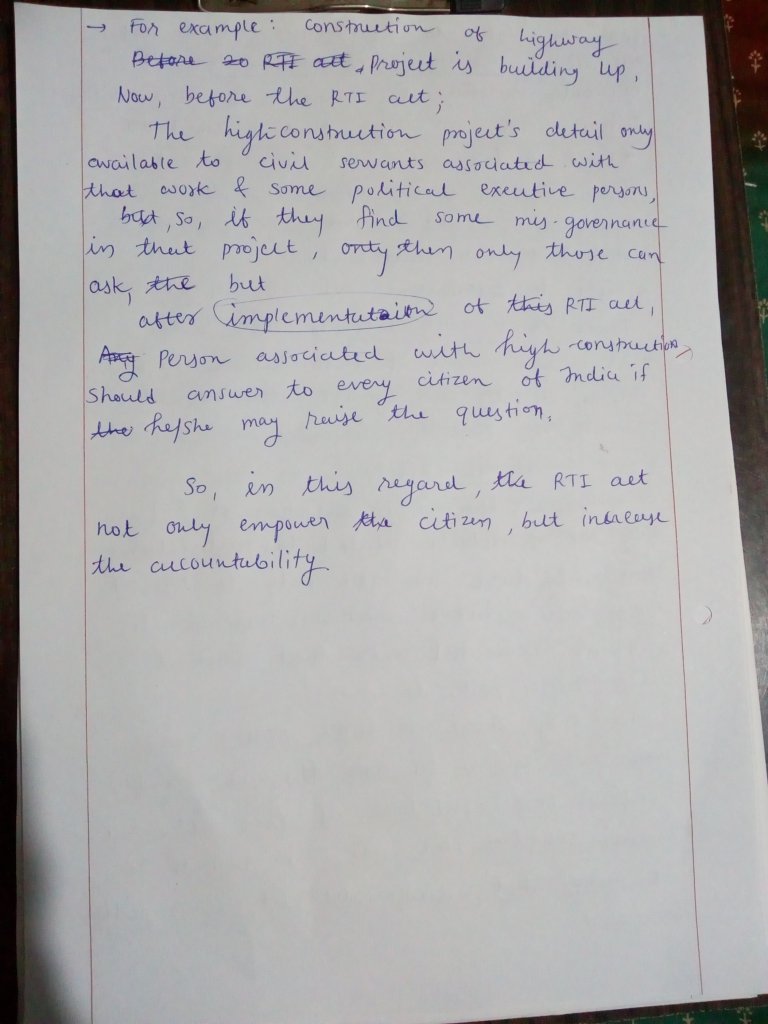 → For example: Construction of highway
Before 20 RTI act, Project is building up,
Now, before the RTI act;
The high-construction project's detail only
available to civil servants associated with
that work & some political exective persons,
but, so, if they find some mis-governance
in that project, only then only those can
ask, the but
after implementataion of this RTI act,
Any Person associated with high-construction
should answer to every citizen of India if
the he/she may raise the question.
So, in this regard, the RTI act
not only empower the citizen, but increase
the accountability.